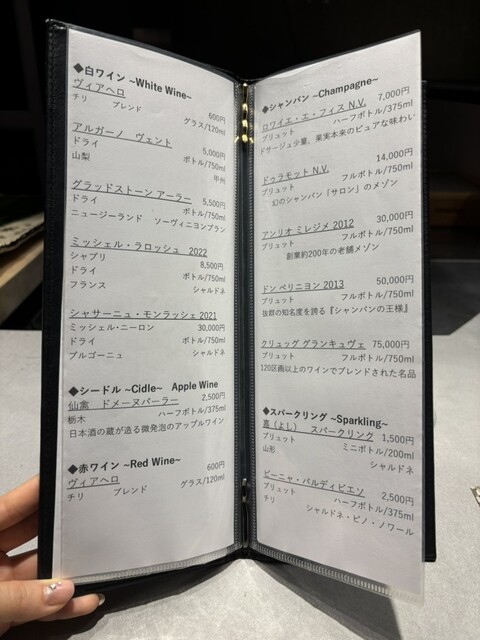 ◆白ワイン ~White Wine~
ヴィアヘロ 600円
チリ ブレンド グラス/120ml
アルガーノ ヴェント 5,000円
ドライ ボトル/750ml
山梨 甲州
グラッドストーン アーラー 5,500円
ドライ ボトル/750ml
ニュージーランド ソーヴィニヨンブラン
ミッシェル・ラロッシュ 2022
シャブリ 8,500円
ドライ ボトル/750ml
フランス シャルドネ
シャサーニュ・モンラッシェ 2021
ミッシェル・ニーロン 30,000円
ドライ ボトル/750ml
ブルゴーニュ シャルドネ
◆シードル ~Cidle~ Apple Wine
仙禽 ドメーヌパーラー 2,500円
栃木 ハーフボトル/375ml
日本酒の蔵が造る微発泡のアップルワイン
◆赤ワイン ~Red Wine~
ヴィアヘロ 600円
チリ ブレンド グラス/120ml
◆シャンパン ~Champagne~
ロワイエ・エ・フィス N.V. 7,000円
ブリュット ハーフボトル/375ml
ドサージュ少量、果実本来のピュアな味わい
ドゥラモット N.V. 14,000円
ブリュット フルボトル/750ml
幻のシャンパン「サロン」のメゾン
アンリオ ミレジメ 2012 30,000円
ブリュット フルボトル/750ml
創業約200年の老舗メゾン
ドン ペリニヨン 2013 50,000円
ブリュット フルボトル/750ml
抜群の知名度を誇る『シャンパンの王様』
クリュッグ グランキュヴェ 75,000円
ブリュット フルボトル/750ml
120区画以上のワインでブレンドされた名品
◆スパークリング ~Sparkling~
嘉（よし） スパークリング 1,500円
ブリュット ミニボトル/200ml
山形 シャルドネ
ビーニャ・バルディビエソ 2,500円
ブリュット ハーフボトル/375ml
チリ シャルドネ・ピノ・ノワール